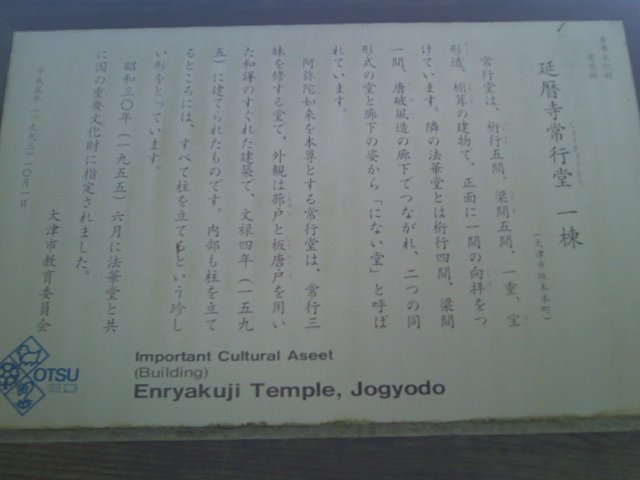 重要文化財
建造物
延暦寺常行堂 一棟
じょうぎょうどう
(大津市坂本本町)
常行堂は、桁行五間、梁間五間、一重、宝
形造、栩葺の建物で、正面に一間の向拝をつ
けています。隣の法華堂とは桁行四間、梁間
一間、唐破風造の廊下でつながれ、二つの同
形式の堂と廊下の姿から「にない堂」と呼ば
れています。
阿弥陀如来を本尊とする常行堂は、常行三
昧を修する堂で、外観は蔀戸と板唐戸を用い
た和洋のすぐれた建築で、文禄四年(一五九
五)に建てられたものです。内部も柱を立て
るところには、すべて柱を立てるという珍し
い形をとっています。
昭和三〇年(一九五五)六月に法華堂と共
に国の重要文化財に指定されました。
大津市教育委員会
平成五年(一九九三)一〇月一日
Important Cultural Aseet
(Building)
Enryakuji Temple, Jogyodo
OTSU